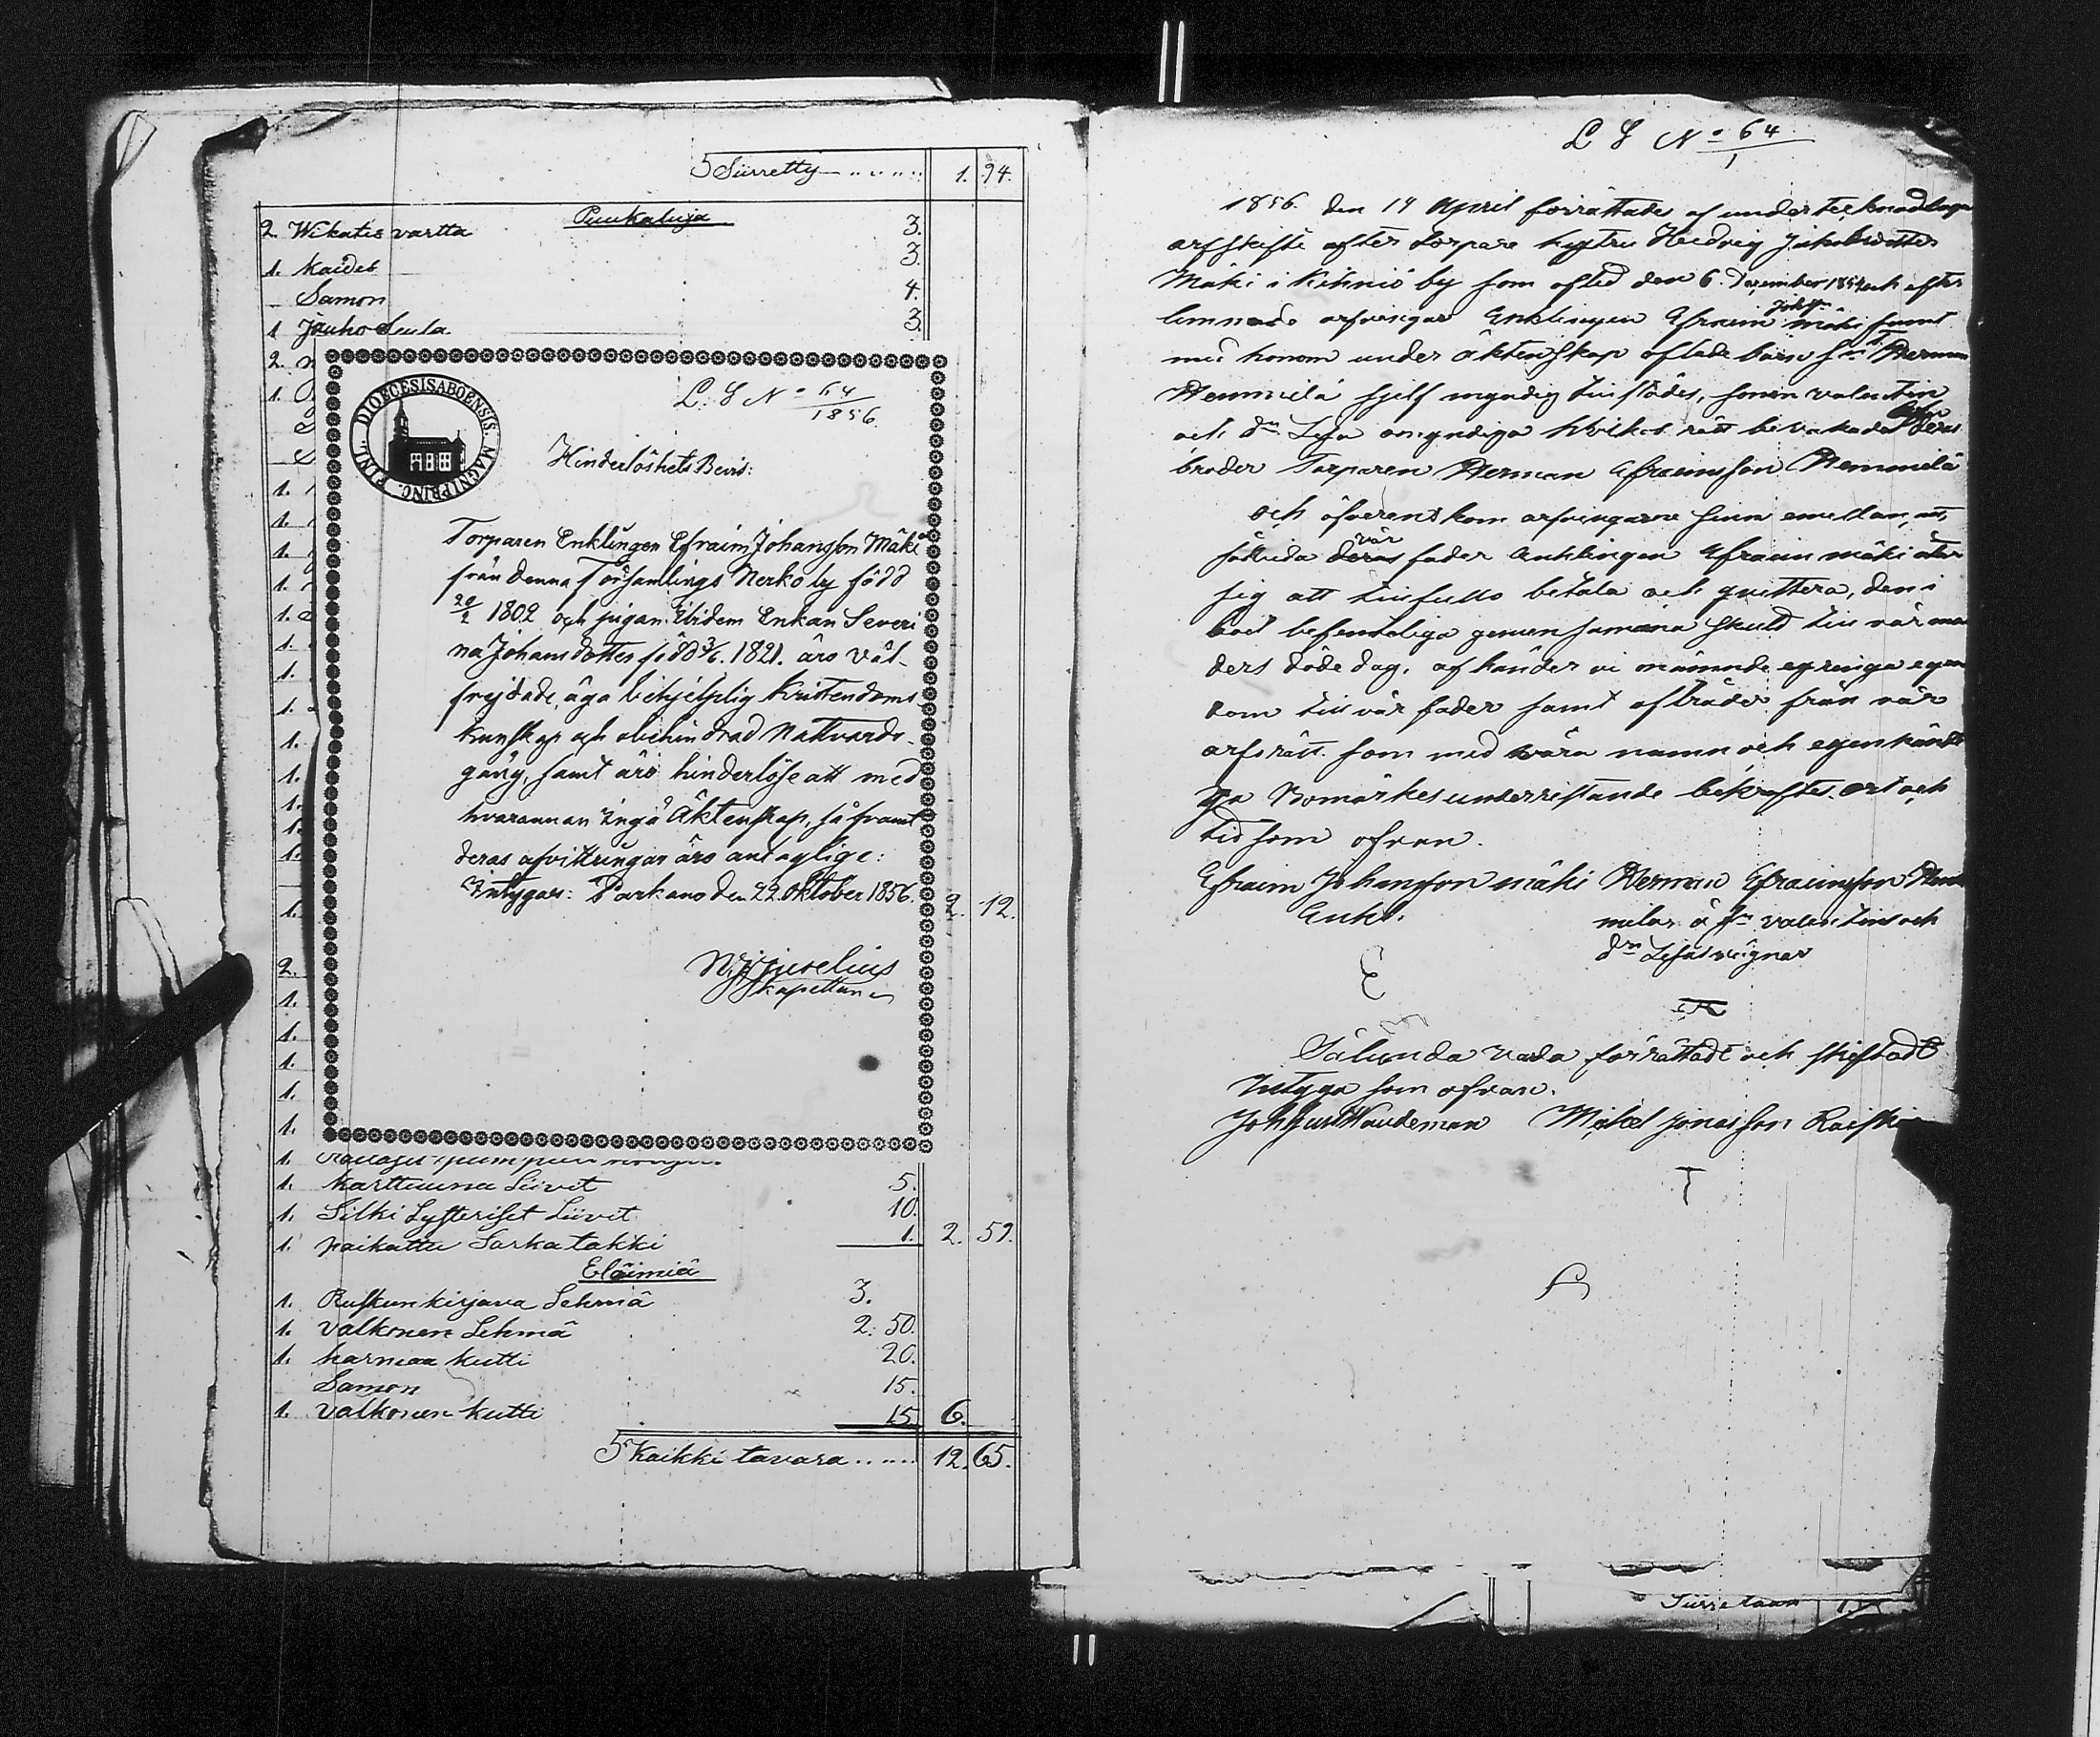 S Siirretty 1. 94.
Puukaluja
2. Wikates vartta 3.
1. Kaides 3.
Samon 4.
1 Jauho Seula 3.
2.
1.
1.
1.
1.
1.
1.
1.
1.
1.
1.
1.
1.
1.
1.
1. 2. 12.
2.
1.
1.
1.
1.
1.
DIOECESIS ABOENSIS. MAGNI PRINC. FINL.
L: S No 64/1856.
Hinderlöshets Bevis:
Torparen Enklingen Efraim Johansson Mäki
från denna Församlings Nerkoby född
20/2 1802 och pigan Ibidem Enkan Severi
na Johansdotter född 3/6. 1821. äro väl-
frejdade, äga behjelplig Kristendoms
kunskap och obehindrad Nattvards-
gång, samt äro hinderlöse att med
hvarannan Ingå Äktenskap, så framt
deras afvittringar äro antaglige:
Intygar: Parkano den 22 Oktober 1856.
kapellan
1.
1. karttuuna Liivit 5.
1. Silki Lysteriset Liivit 10.
1. paikattu Sarka takki 1. 2. 59.
Eläimiä
1. Ruskunkirjava Lehmä 3.
1. Valkonen Lehmä 2. 50.
1. harmaa kutti 20.
Samon 15.
1. Valkonen kutti 15. 6.
S Kaikki tavara 12. 65.
L S No 64/1
1856 den 19 April förrättades af undertecknad laga
arfskifte efter torpare hustru Hedvig Jakobsdotter
Mäki i Kihniö by som afled den 6. December 1854 och efter
lemnade arfvingar Enklingen Efraim Johsson Mäki samt
med honom under äktenskap aflade barn sn Herman
Hemmilä sjelf myndig tillstädes, sonen Valentin
och dn Lisa omyndiga hvilkas rätt bevakades deras
broder Torparen Herman Efraimsson Hemmilä
och öfverenskom arfvingarne sinn emellan, att,
såluida deras vår fader Enklingen Efraim Mäki åter
sig att tillfullo betala och quittera, den i
boet befinteliga gemensamma skuld till vår mo
ders döde dag, afhänder vi nämnde egringa egen
dom till vår fader samt afträder från vår
arfsrätt. som med våra namn och egenhändi
ga Bomärkes underristande bekraftes. Ort och
tid som ofvan.
Efraim Johansson Mäki Herman Efraimsson Hem
Enkl. milä å sn Valentins och
dn Lisas vägnar
E
Sålunda vara förrättadt och skiftadt
Intyga som ofvan.
Mickel Jonasson
T
Siirretään 1.